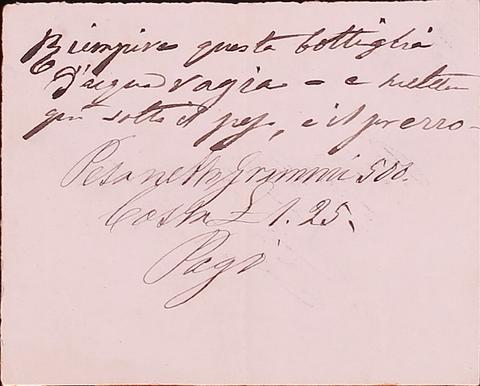 Riempire questa bottiglia
d'acqua ragia – e mettere
qui sotto il peso, e il prezzo –
Peso netto grammi 500.
Costa £ 1.25.
Pagi